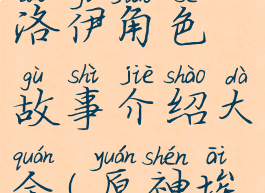 洛伊角色
gù shì jiè shào dà
故事介绍大
quán yuán shén āi
全(原神埃